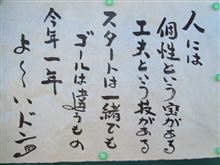 人には
個性という宝がある
工夫という技がある
スタートは一緒でも
ゴールは違うもの
今年一年
よ〜いドン